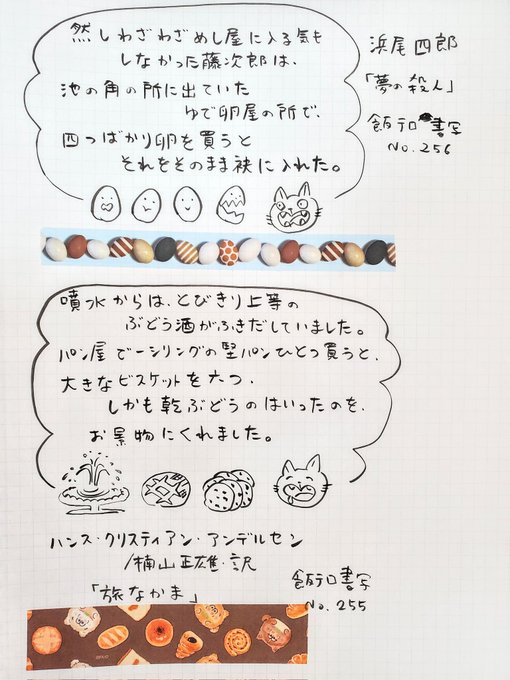 然しわざわざめし屋に入る気も
しなかった藤次郎は、
池の角の所に出ていた
ゆで卵屋の所で、
四つばかり卵を買うと
それをそのまま袂に入れた。
浜尾四郎
「夢の殺人」
飯テロ書写
No.256
噴水からは、とびきり上等の
ぶどう酒がふきだしていました。
パン屋で一シリングの堅パンひとつ買うと、
大きなビスケットを六つ、
しかも乾ぶどうのはいったのを、
お景物にくれました。
ハンス・クリスティアン・アンデルセン
/楠山正雄・訳
「旅なかま」
飯テロ書写
No.255